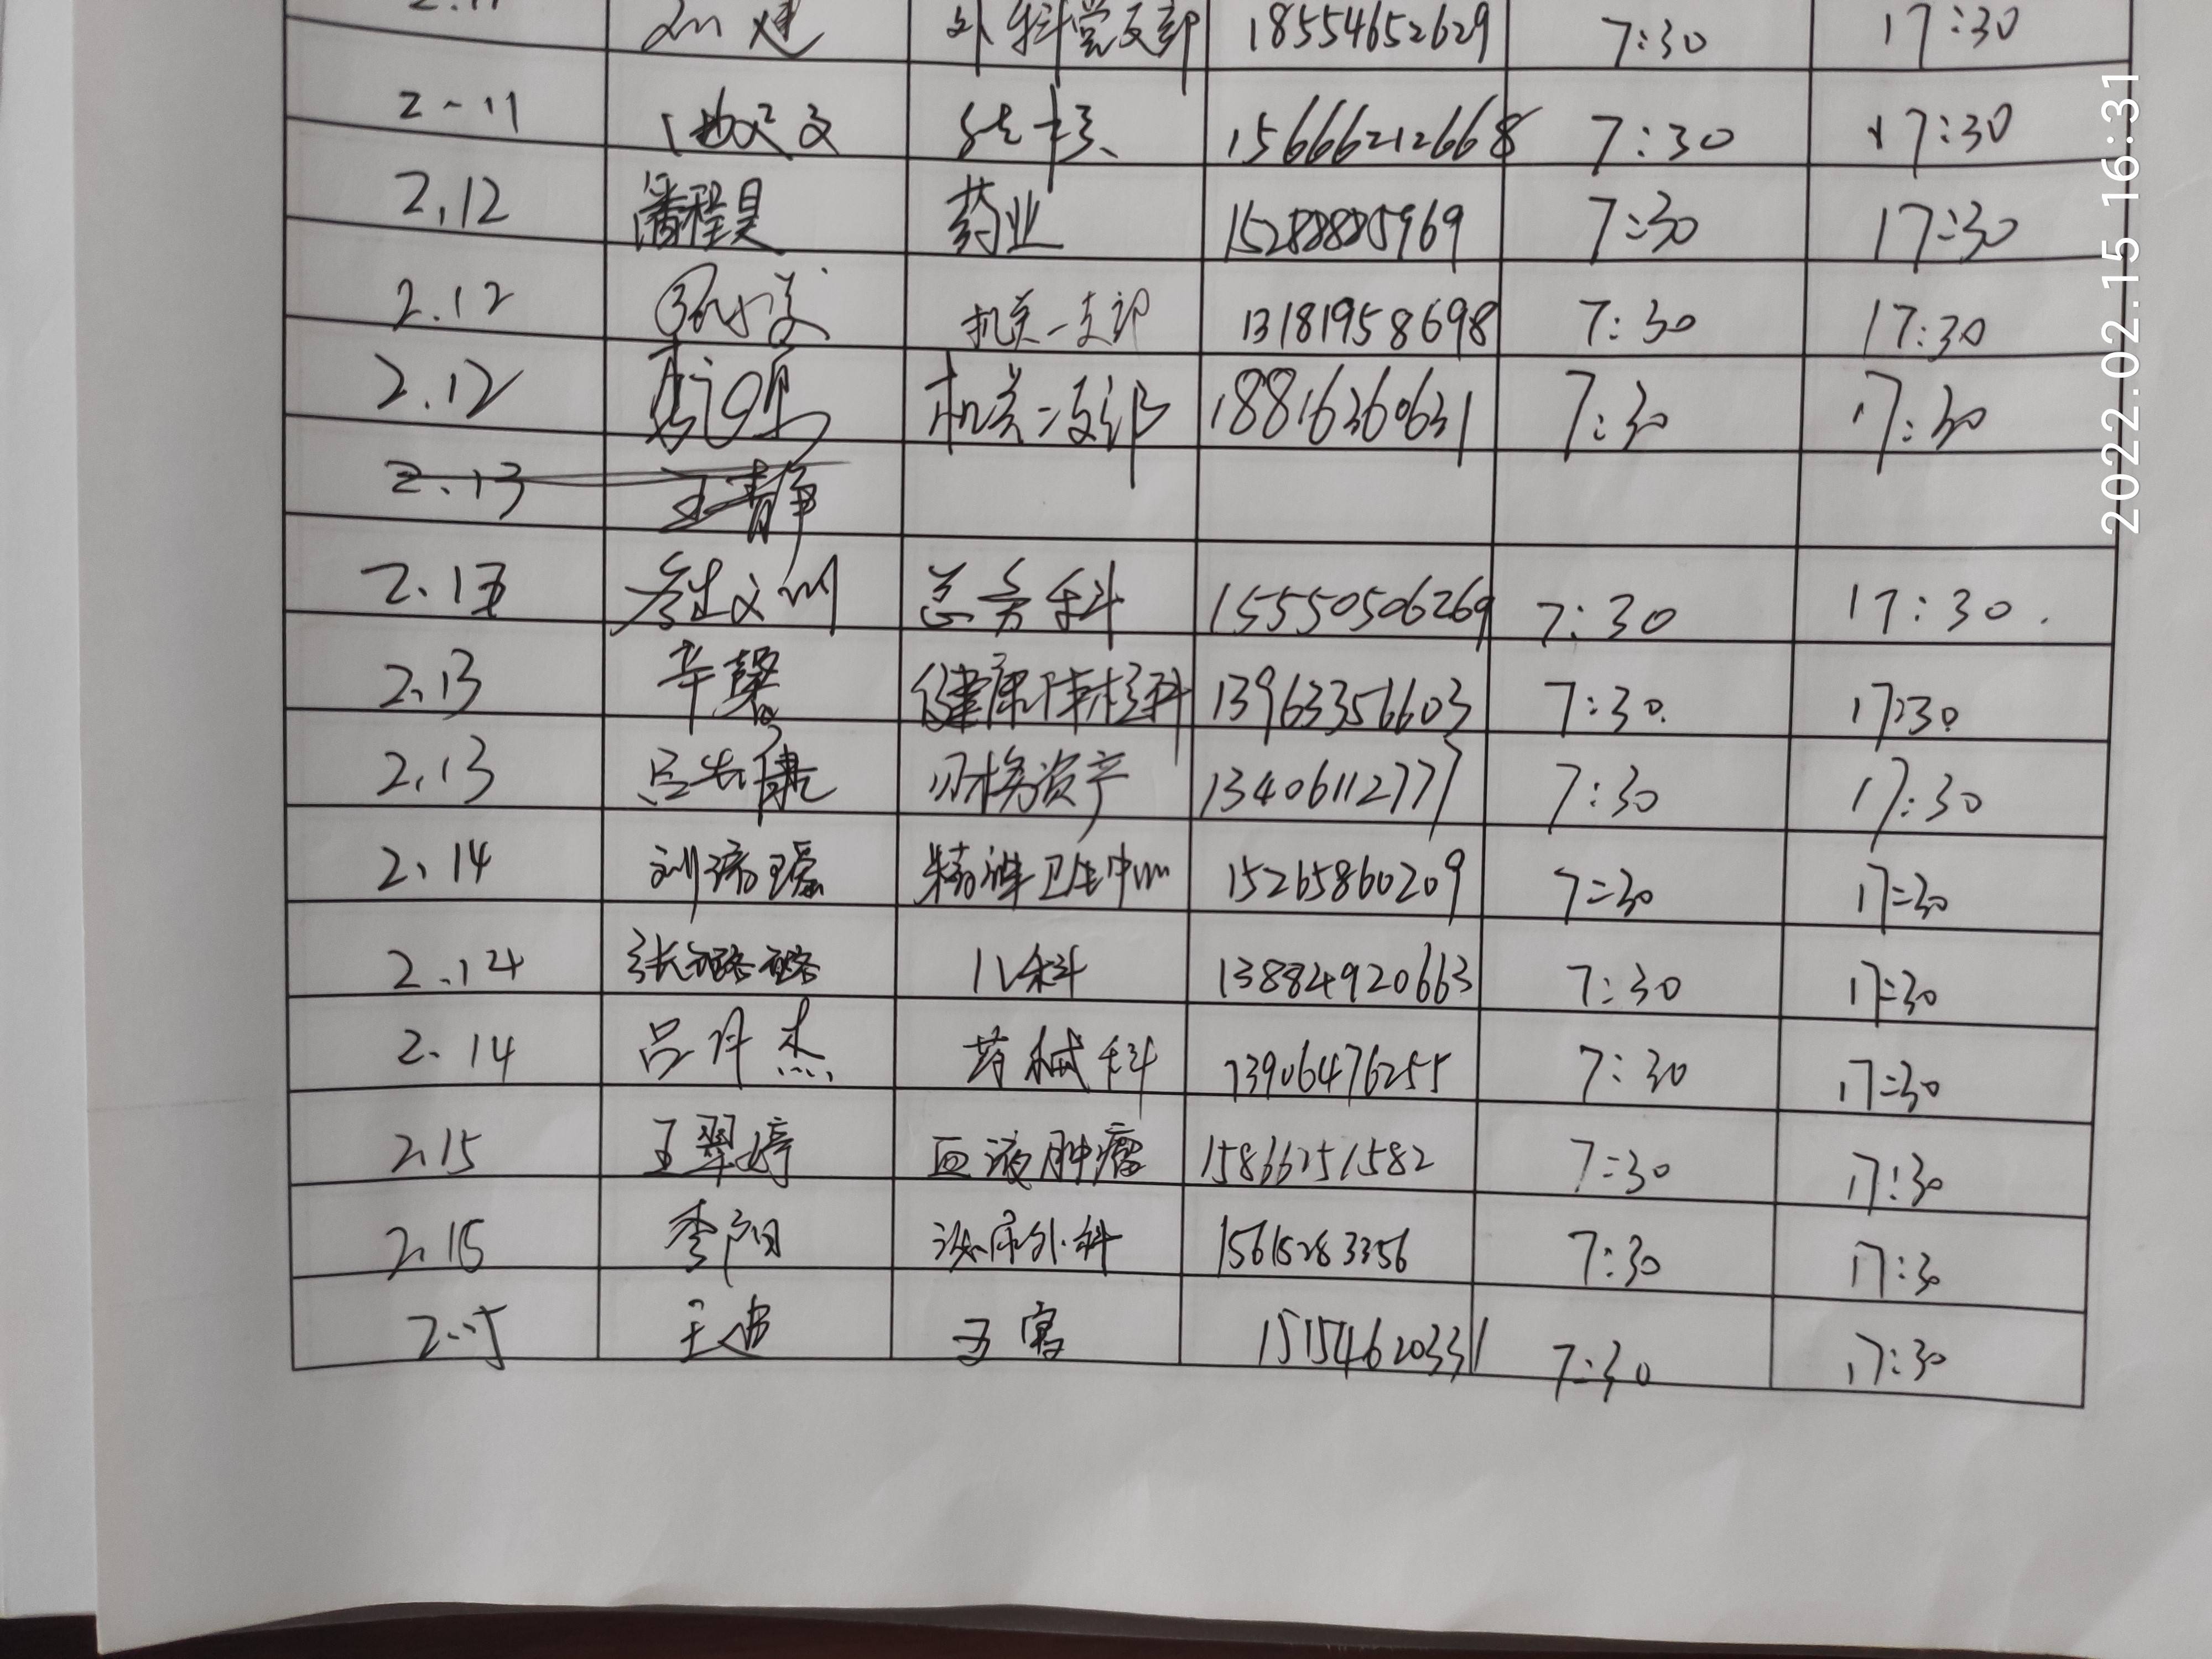 外科党支部 18554652629 7:30 17:30
2-11 15666212668 7:30 17:30
2.12 潘程昊 药业 15288885969 7:30 17:30
2.12 机关一支部 13181958698 7:30 17:30
2.12 机关二支部 18816360631 7:30 17:30
2.13 王青静
2.13 总务科 15550506269 7:30 17:30.
2.13 辛馨 健康体检科 13963356603 7:30. 17:30
2.13 财务资产 13406112777 7:30 17:30
2.14 刘 精神卫生中心 15265860209 7:30 17:30
2.14 张璐璐 儿科 13884920663 7:30 17:30
2.14 吕丹杰 药械科 13906476255 7:30 17:30
2.15 王翠婷 血液肿瘤 15866251582 7:30 17:30
2.15 李阳 泌尿外科 15615283356 7:30 17:30
2.15 王迪 15154620331 7:30 17:30
2022.02.15 16:31